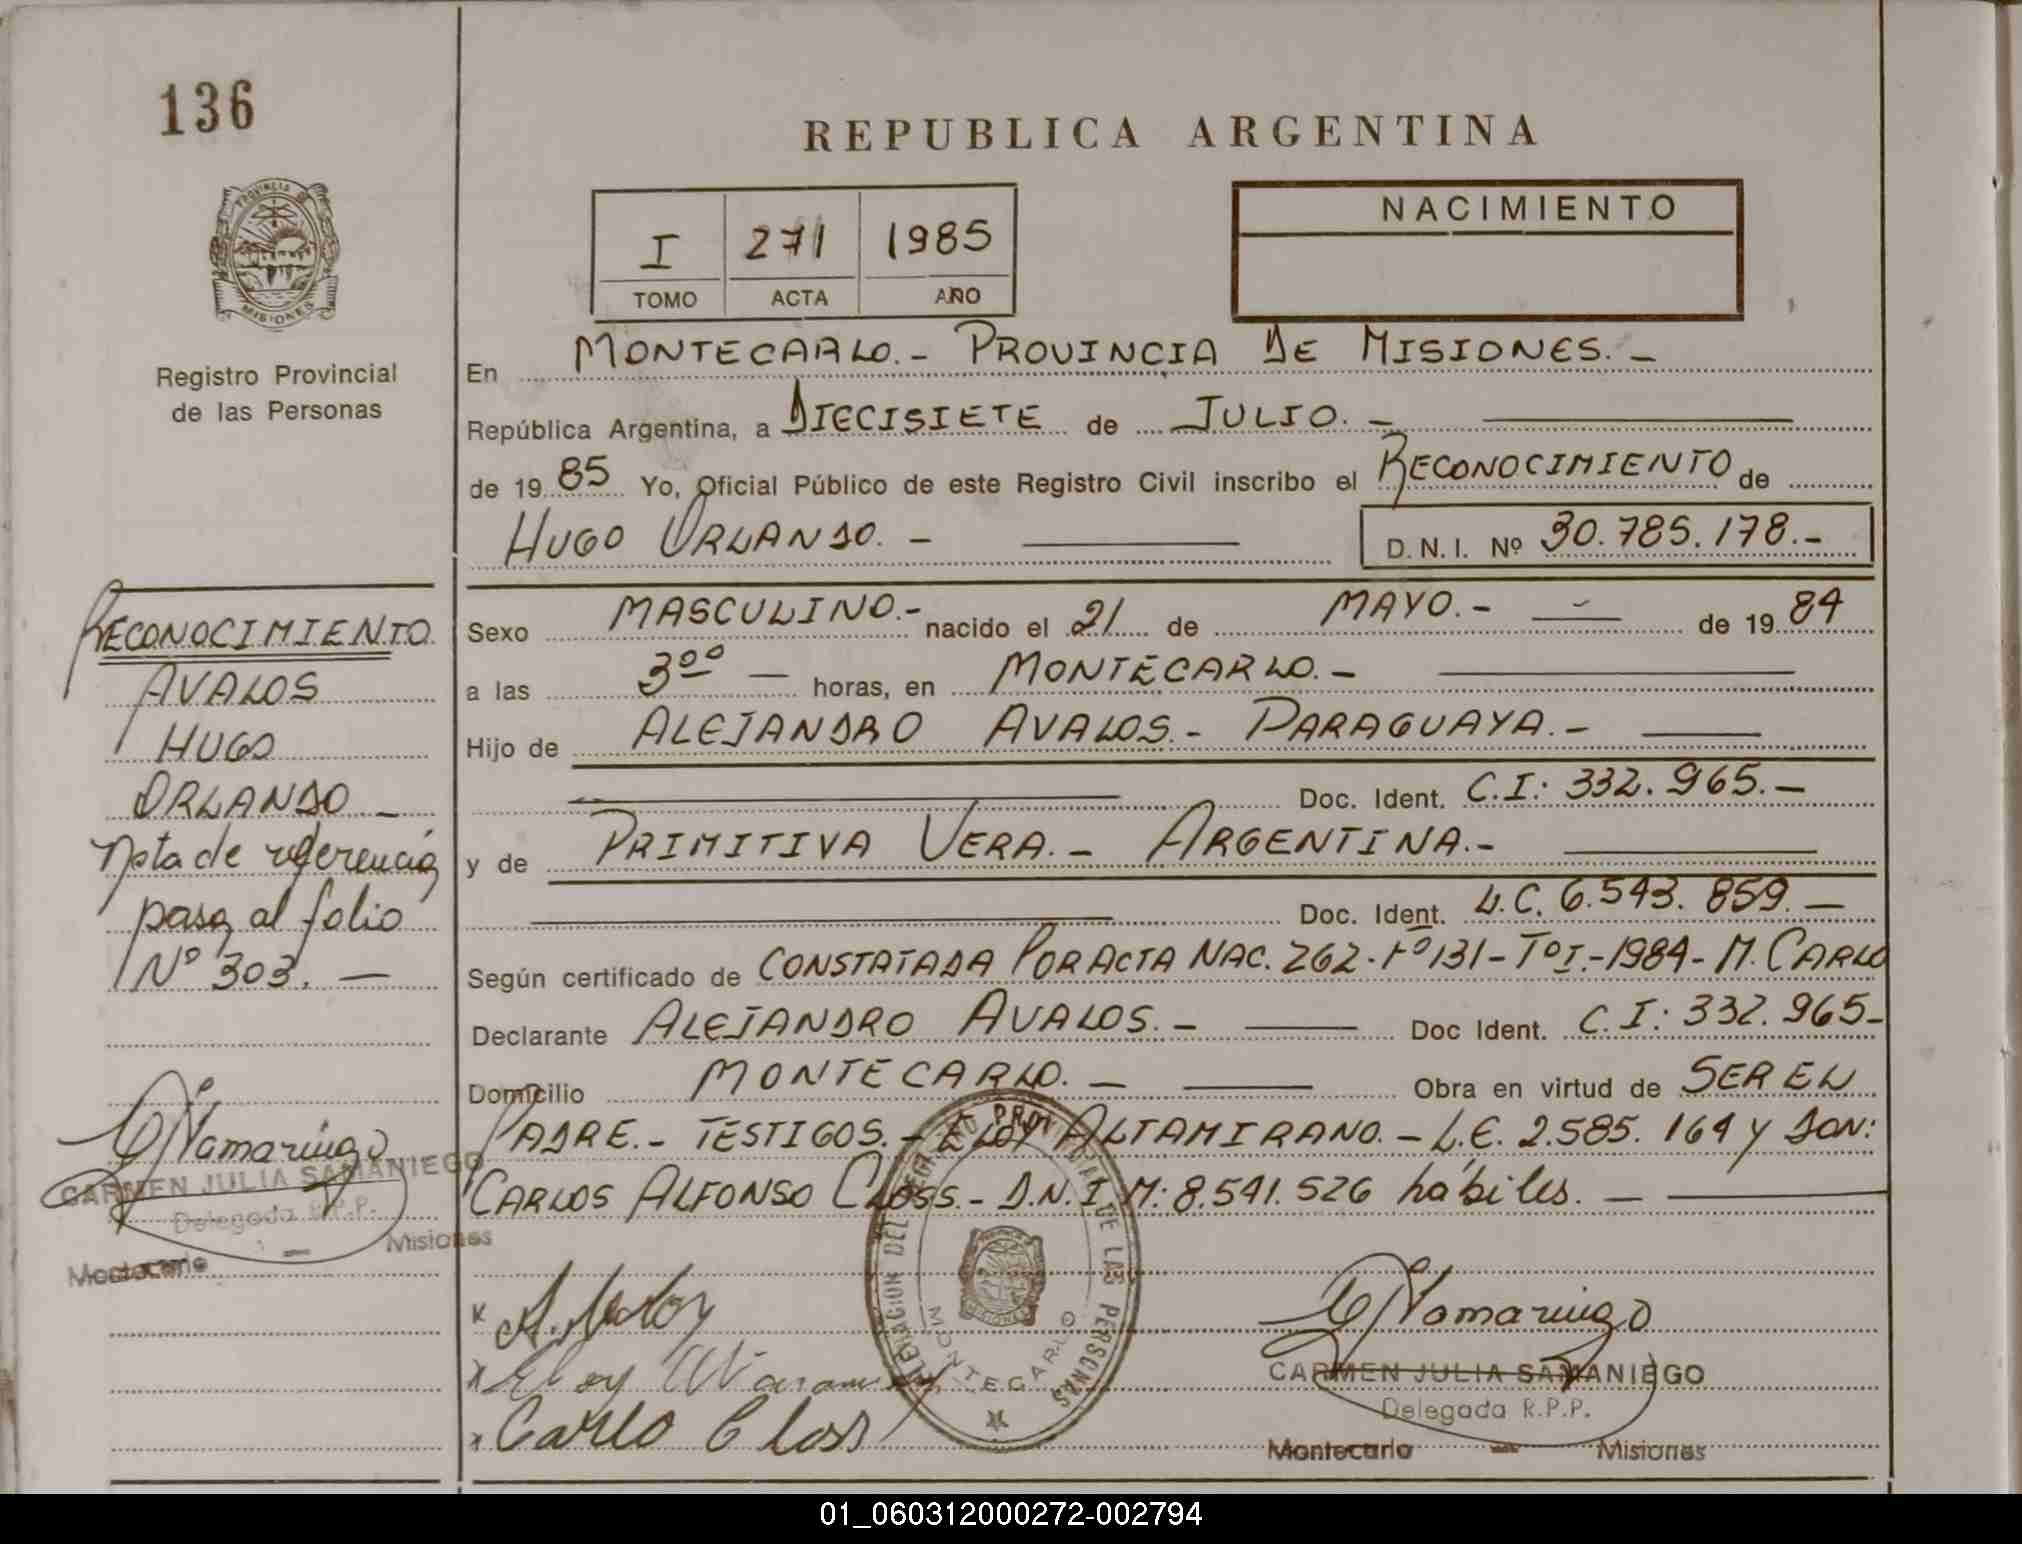 136
PROVINCIA DE
MISIONES
Registro Provincial
de las Personas
REPUBLICA ARGENTINA
I 271 1985
TOMO ACTA AÑO
NACIMIENTO
En MONTECARLO.- PROVINCIA DE MISIONES.-
República Argentina, a DIECISIETE de JULIO.-
de 1985 Yo, Oficial Público de este Registro Civil inscribo el RECONOCIMIENTO de
HUGO ORLANDO.- D.N.I. Nº 30.785.178.-
Sexo MASCULINO.- nacido el 21 de MAYO.- de 1984
a las 3⁰⁰ - horas, en MONTECARLO.-
Hijo de ALEJANDRO AVALOS.- PARAGUAYA.-
Doc. Ident. C.I: 332.965.-
y de PRIMITIVA VERA.- ARGENTINA.-
Doc. Ident. L.C. 6.543.859.-
Según certificado de CONSTATADA POR ACTA NAC. 262-Fº131-TºI.-1984-M. CARLO
Declarante ALEJANDRO AVALOS.- Doc Ident. C.I: 332.965-
Domicilio MONTECARLO.- Obra en virtud de SER EL
PADRE.- TESTIGOS.- ELOY ALTAMIRANO.- L.E. 2.585.164 y DON:
CARLOS ALFONSO CLOSS.- D.N.I. M: 8.541.526 hábiles.-
RECONOCIMIENTO
AVALOS
HUGO
ORLANDO -
Nota de referencia
pasa al folio
Nº 303.-
CARMEN JULIA SAMANIEGO
Delegada R.P.P.
Montecarlo - Misiones
Carlo Closs
DELEGACION DEL REGISTRO PROVINCIAL DE LAS PERSONAS
MONTECARLO
MISIONES
CARMEN JULIA SAMANIEGO
Delegada R.P.P.
Montecarlo - Misiones
01_060312000272-002794